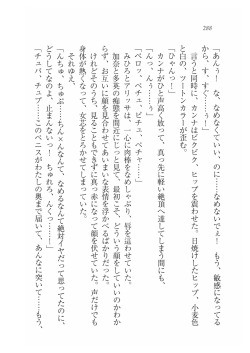 288
「あんぅ！　な、なめなくていい、のに……なめないでえ！　もう、敏感になってる
から、す、すぐ……！」
言うと同時に、カンナはビクビク、ヒップを震わせた。日焼けしたヒップ、小麦色
と白の、ツートンカラーが歪む。
「ひゃんっ！」
カンナがひと声高く放って、真っ先に軽い絶頂へ達してしまう間にも、
「んっ、んぅ……ぅ！」
「ペロッ、ペチュ、ピチュ、ペチャ……」
みひろとアリッサは、一心に肉棒をなめしゃぶり、唇を這わせていた。
らず、お互いに顔を見合わせてあいまいな表情を浮かべるばかりだった。
けれどそのうち、見ることもできずに真っ赤になって顔を伏せていた。声だけでも
身体が熱くなって、女芯をとろかせてしまっていた。
それゆえ、
「んちゅ、ちゅぷ……んんなんて、なめるなんて絶対イヤだって思ってたのに、
どうしてなのよ、止まんないっ！　ちゅれろ、んくっ……！」
「チュパ、チュプ……このペニスがわたしの奥まで届いて、あんなに突いて……もう、